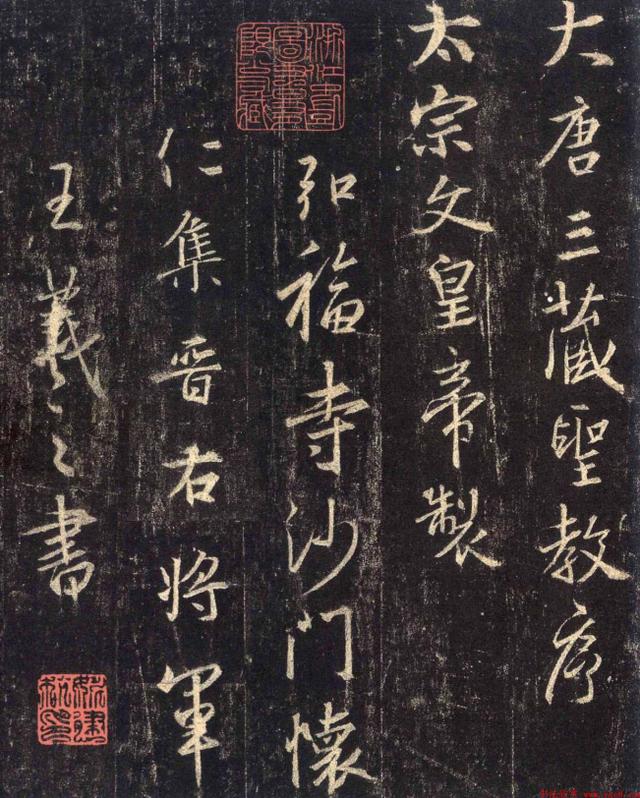 大唐三藏聖教序
太宗文皇帝製
弘福寺沙門懷
仁集晋右將軍
王羲之書